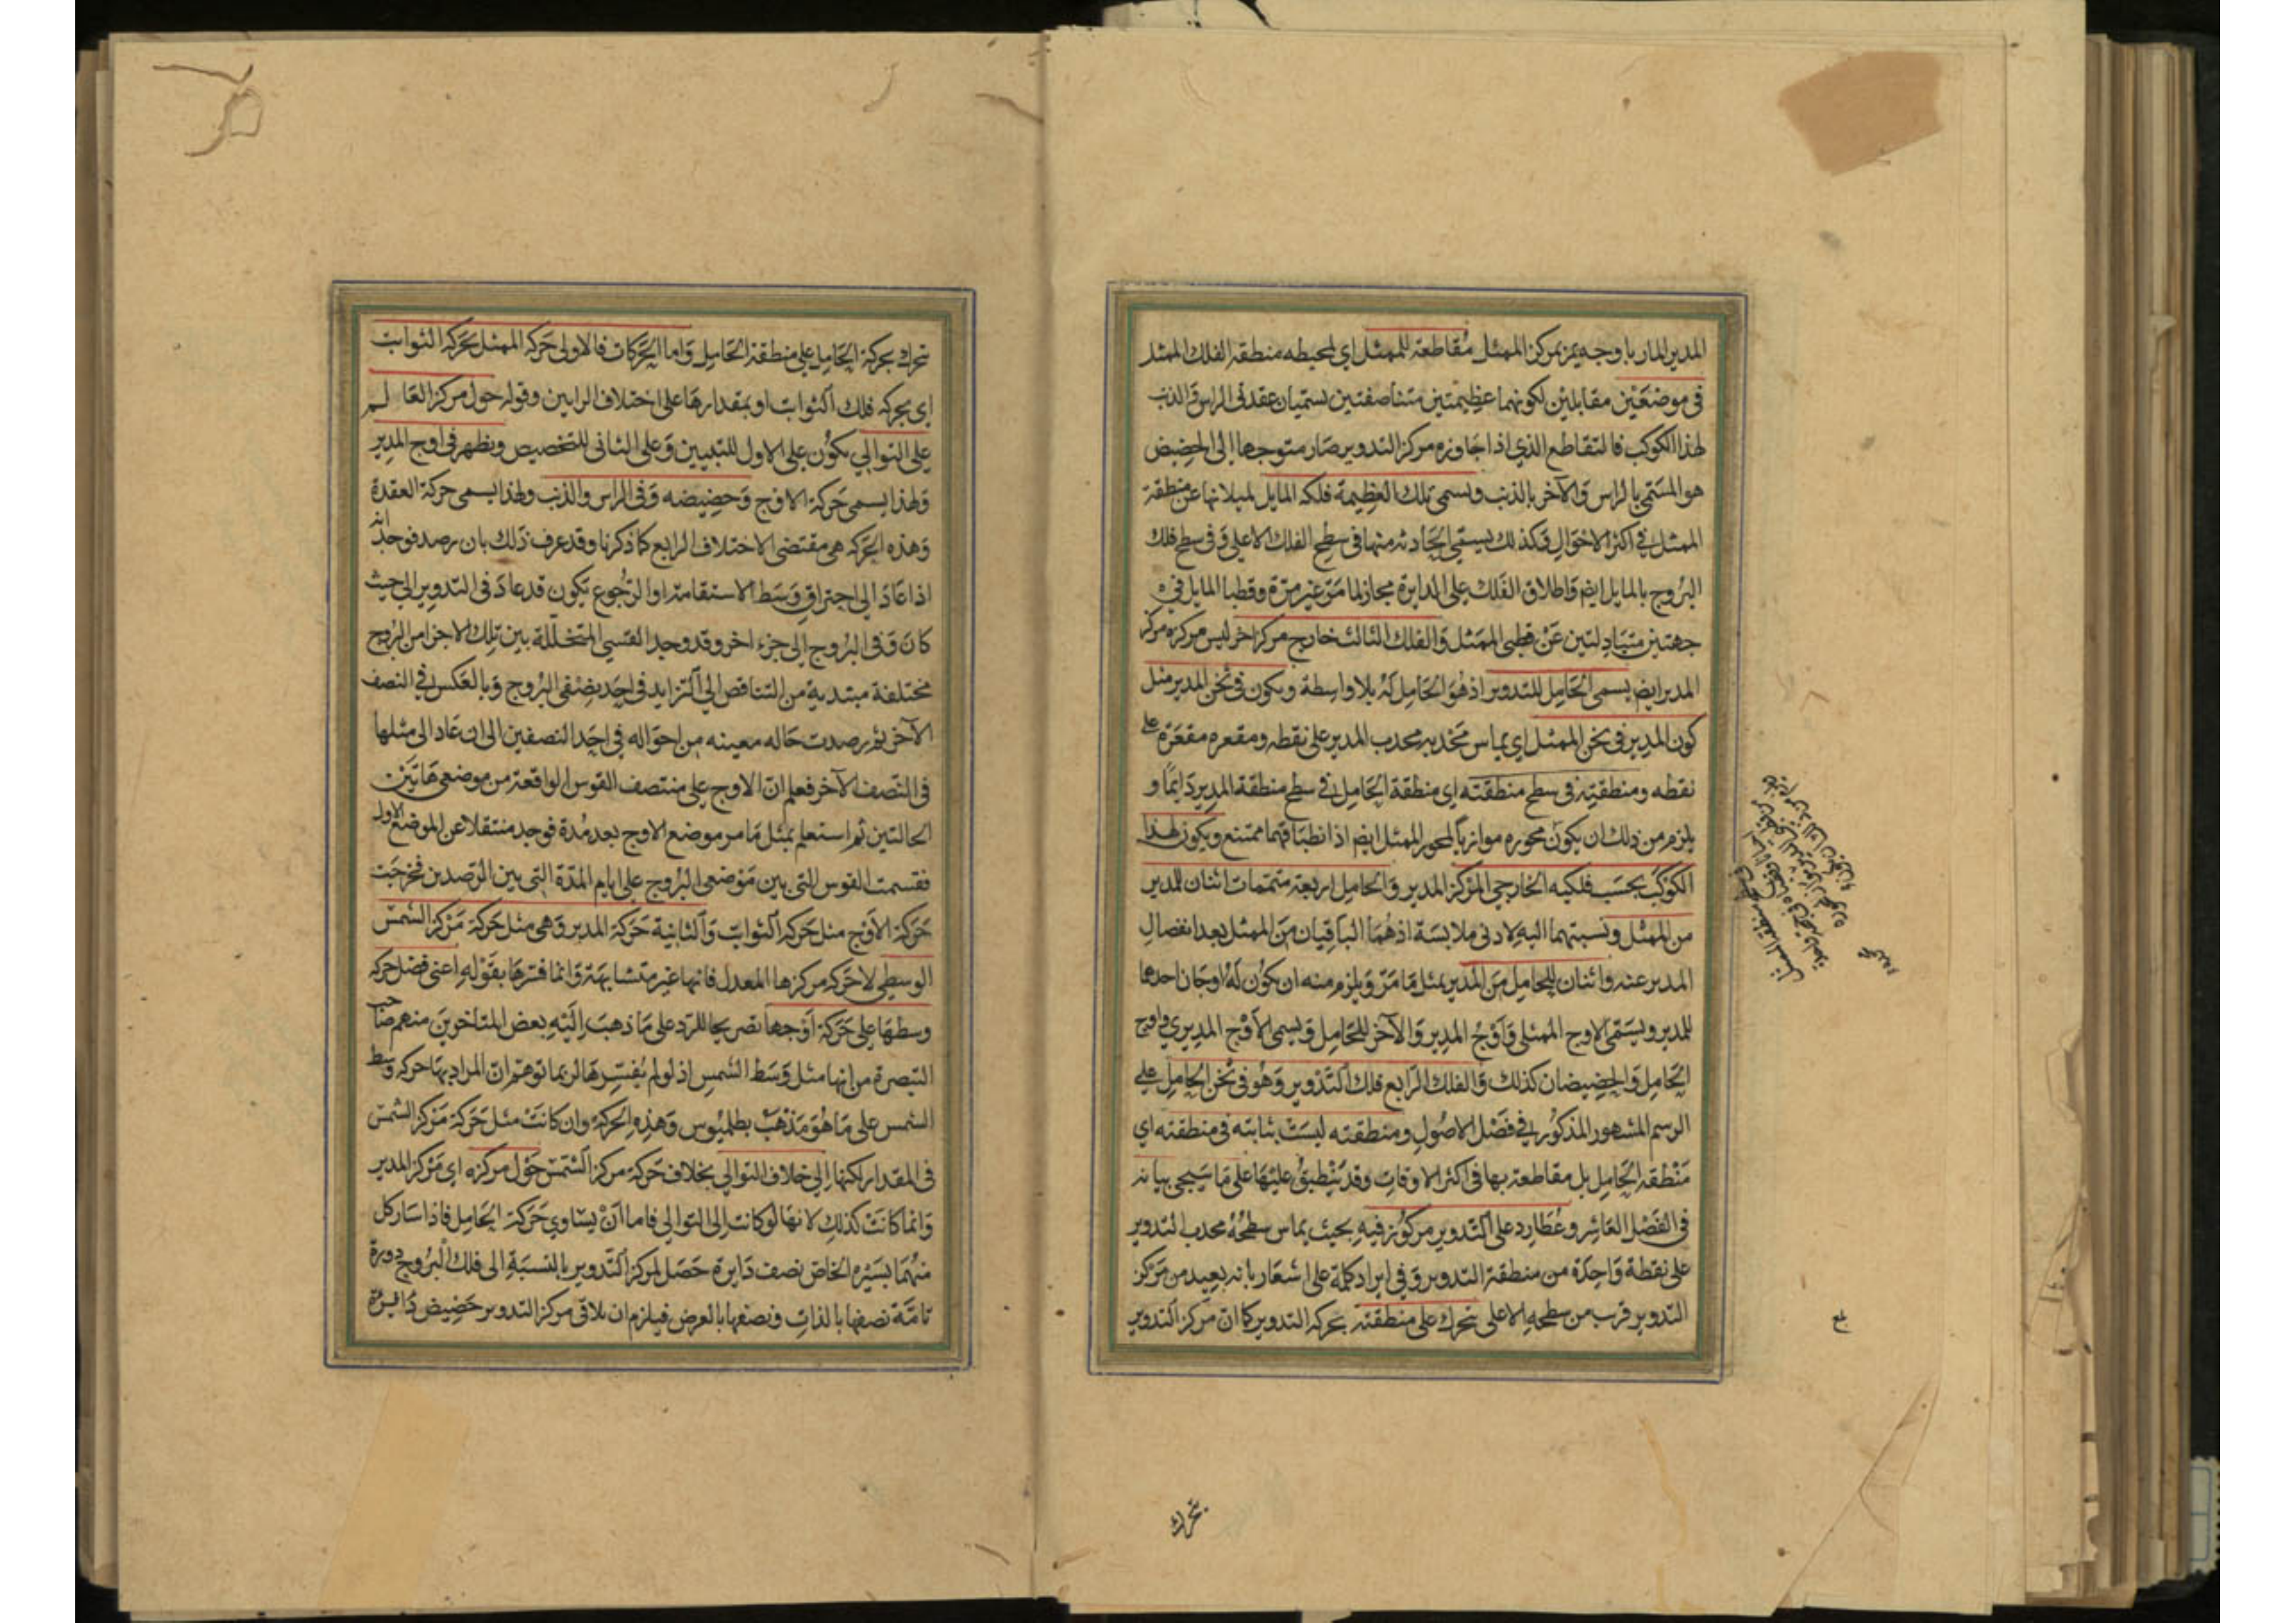 المدير المار باوجه يمر بمركز الممثل مقاطعة للممثل اي لمحيطه منطقة الفلك الممثل
في موضعين مقابلين لكونهما عظيمتين متناصفتين تسميان عقدتي الراس والذنب
لهذا الكوكب فالتقاطع الذي اذا جاوزه مركز التدوير صار متوجها الى الحضيض
هو المسمى بالراس والآخر بالذنب وتسمى تلك العظيمة فلكه المايل لميلانها عن منطقة
الممثل في اكثر الاحوال وكذلك يسمى الحادثه منها في سطح الفلك الاعلى وفى سطح فلك
البروج بالمايل ايضا واطلاق الفلك على الدايرة مجاز لما مر غير مرة وقطبا المايل في
جهتين متبادلتين عن قطبى الممثل والفلك الثالث خارج مركز اخر ليس مركزه مركز
المدير ايض يسمى الحامل للتدوير اذ هو الحامل له بلا واسطة ويكون في ثخن المدير مثل
كون المدير في ثخن الممثل اي يماس محدبه محدب المدير على نقطه ومقعره مقعره على
نقطه ومنطقته في سطح منطقته اى منطقة الحامل في سطح منطقة المدير دايما و
يلزم من ذلك ان يكون محوره موازيا لمحور الممثل ايض اذ انطباقهما ممتنع ويكون لهذا
الكوكب بحسب فلكيه الخارجي المركز المدير والحامل اربعة متممات اثنان للمدير
من الممثل ونسبتهما اليه لادنى ملابسة اذ هما الباقيان من الممثل بعد انفصال
المدير عنه واثنان للحامل من المدير بمثل ما مر ويلزم منه ان يكون له اوجان احدهما
للمدير ويسمى الاوج الممثلى واوج المدير والآخر للحامل ويسمى الاوج المديري واوج
الحامل والحضيضان كذلك والفلك الرابع فلك التدوير وهو في ثخن الحامل على
الرسم المشهور المذكور في فصل الاصول ومنطقته ليست بثابته في منطقته اي
منطقه الحامل بل مقاطعة بها في اكثر الاوقات وقد ينطبق عليها على ما سيجي بيانه
فى الفصل العاشر وعطارد على التدوير مركوز فيه بحيث يماس سطحه محدب التدوير
على نقطة واحدة من منطقة التدوير وفي ايراد كلمة على اشعار بانه بعيد من مركز
التدوير قرب من سطحه الاعلى يتحرك على منطقته بحركه التدوير كما ان مركز التدوير
يتحرك
يتحرك بحركة الحامل على منطقة الحامل واما الحركات فالاولى حركه الممثل بحركه الثوابت
اى بحركه فلك الثوابت او بمقدارها على اختلاف الرايين وقوله حول مركز العالم
على التوالي يكون على الاول للتبيين وعلى الثانى للتخصيص ويظهر في اوج المدير
ولهذا يسمى حركة الاوج وحضيضه وفى الراس والذنب ولهذا يسمى حركة العقدة
وهذه الحركه هى مقتضى الاختلاف الرابع كما ذكرنا وقد عرف ذلك بان رصد فوجد انه
اذا عاد الى احتراق وسط الاستقامة او الرجوع يكون قد عاد فى التدوير الى حيث
كان وفى البروج الى جزء اخر وقد وجد القسي المتخللة بين تلك الاجزا من البروج
مختلفة مبتدية من التناقص الى التزايد فى احد نصفى البروج وبالعكس في النصف
الآخر ثم رصدت حاله معينه من احواله في احد النصفين الى ان عاد الى مثلها
فى النصف الآخر فعلم ان الاوج على منتصف القوس الواقعة من موضعى هاتين
الحالتين ثم استعلم بمثل ما مر موضع الاوج بعد مدة فوجد منتقلا عن الموضع الاول
فقسمت القوس التى بين موضعى البروج على ايام المدة التى بين الرصدين فخرجت
حركة الاوج مثل حركه الثوابت والثانية حركة المدير وهى مثل حركة مركز الشمس
الوسطى لا حركه مركزها المعدل فانها غير متشابهة وانما فسرها بقوله اعنى فضل حركه
وسطها على حركة اوجها تصريحا للرد على ما ذهب اليه بعض المتاخرين منهم صاحب
التبصرة من انها مثل وسط الشمس اذ لو لم يفسرها لربما توهم ان المراد بها حركه وسط
الشمس على ما هو مذهب بطلميوس وهذه الحركة وان كانت مثل حركة مركز الشمس
فى المقدار لكنها الى خلاف التوالي بخلاف حركة مركز الشمس حول مركزه اى مركز المدير
وانما كانت كذلك لانها لو كانت الى التوالى فاما ان يساوي حركة الحامل فاذا سار كل
منهما بسيره الخاص نصف دايرة حصل لمركز التدوير بالنسبة الى فلك البروج دورة
تامة نصفها بالذات ونصفها بالعرض فيلزم ان يلاقى مركز التدوير حضيض دايرة